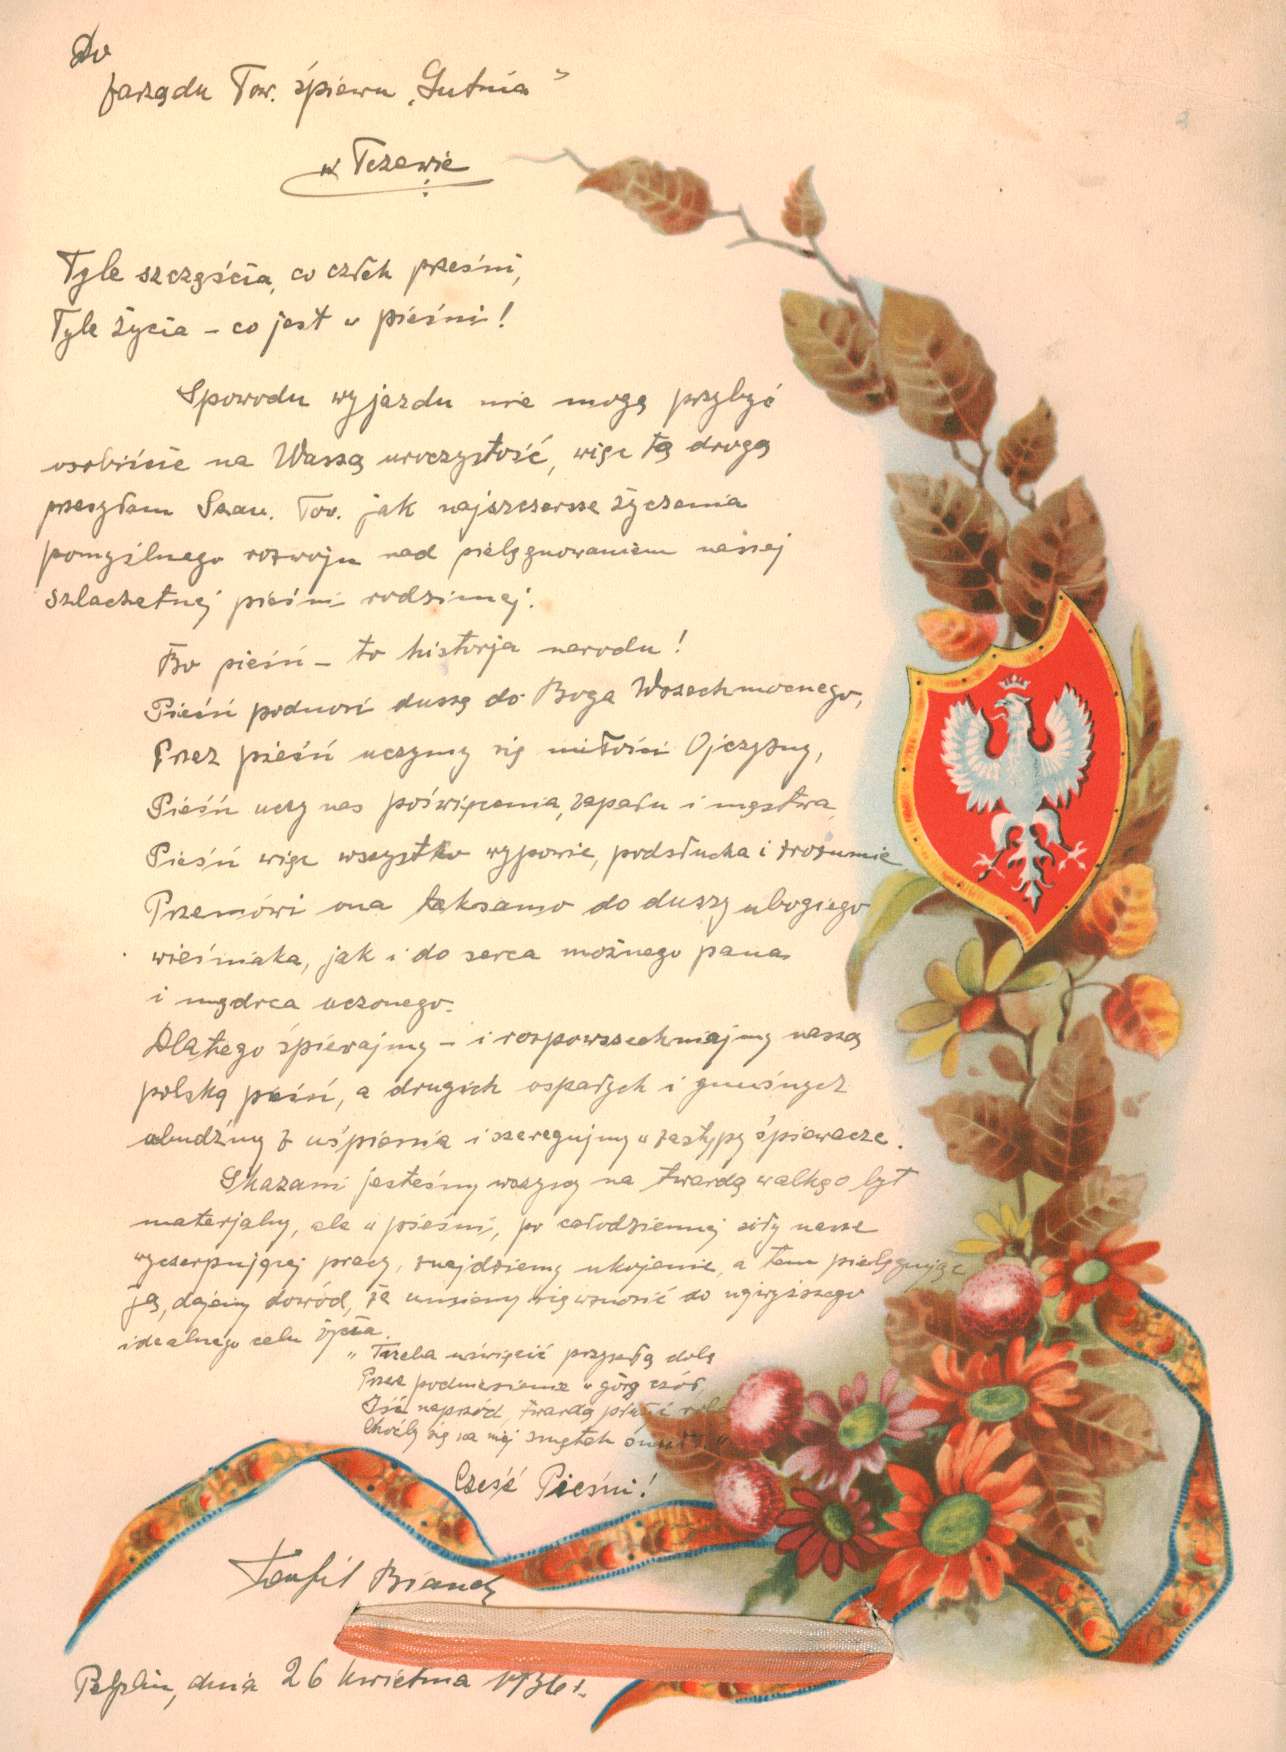 Do
Zarządu Tow. śpiewu „Lutnia”
w Tczewie
Tyle szczęścia, co człek prześni,
Tyle życia – co jest w pieśni!
Spowodu wyjazdu nie mogę przybyć
osobiście na Waszą uroczystość, więc tą drogą
przesyłam Szan. Tow. jak najszczersze życzenia
pomyślnego rozwoju nad pielęgnowaniem naszej
szlachetnej pieśni rodzimej.
Bo pieśń – to historja narodu!
Pieśń podnosi duszę do Boga Wszechmocnego,
Przez pieśń uczymy się miłości Ojczyzny,
Pieśń uczy nas poświęcenia, zapału i męstwa,
Pieśń więc wszystko wypowie, podsłucha i zrozumie
Przemówi ona taksamo do duszy ubogiego
wieśniaka, jak i do serca możnego pana
i mędrca uczonego.
Dlatego śpiewajmy – i rozpowszechniajmy naszą
polską pieśń, a drugich ospałych i gnuśnych
obudźmy z uśpienia i szeregujmy w zastępy śpiewacze.
Skazani jesteśmy wszyscy na twardą walkę o byt
materjalny, ale w pieśni, po całodziennej siły nasze
wyczerpującej pracy, znajdziemy ukojenie, a tem pielęgnując
Ją, dajemy dowód, że umiemy się wznosić do najwyższego
idealnego celu życia.
„Trzeba uświęcić przyszłą dolę
Przez podniesienie w górę czół,
Iść naprzód, twardą
Choćby się na niej
Cześć Pieśni!
Teofil
Pelplin, dnia 26 kwietnia 1936 r.